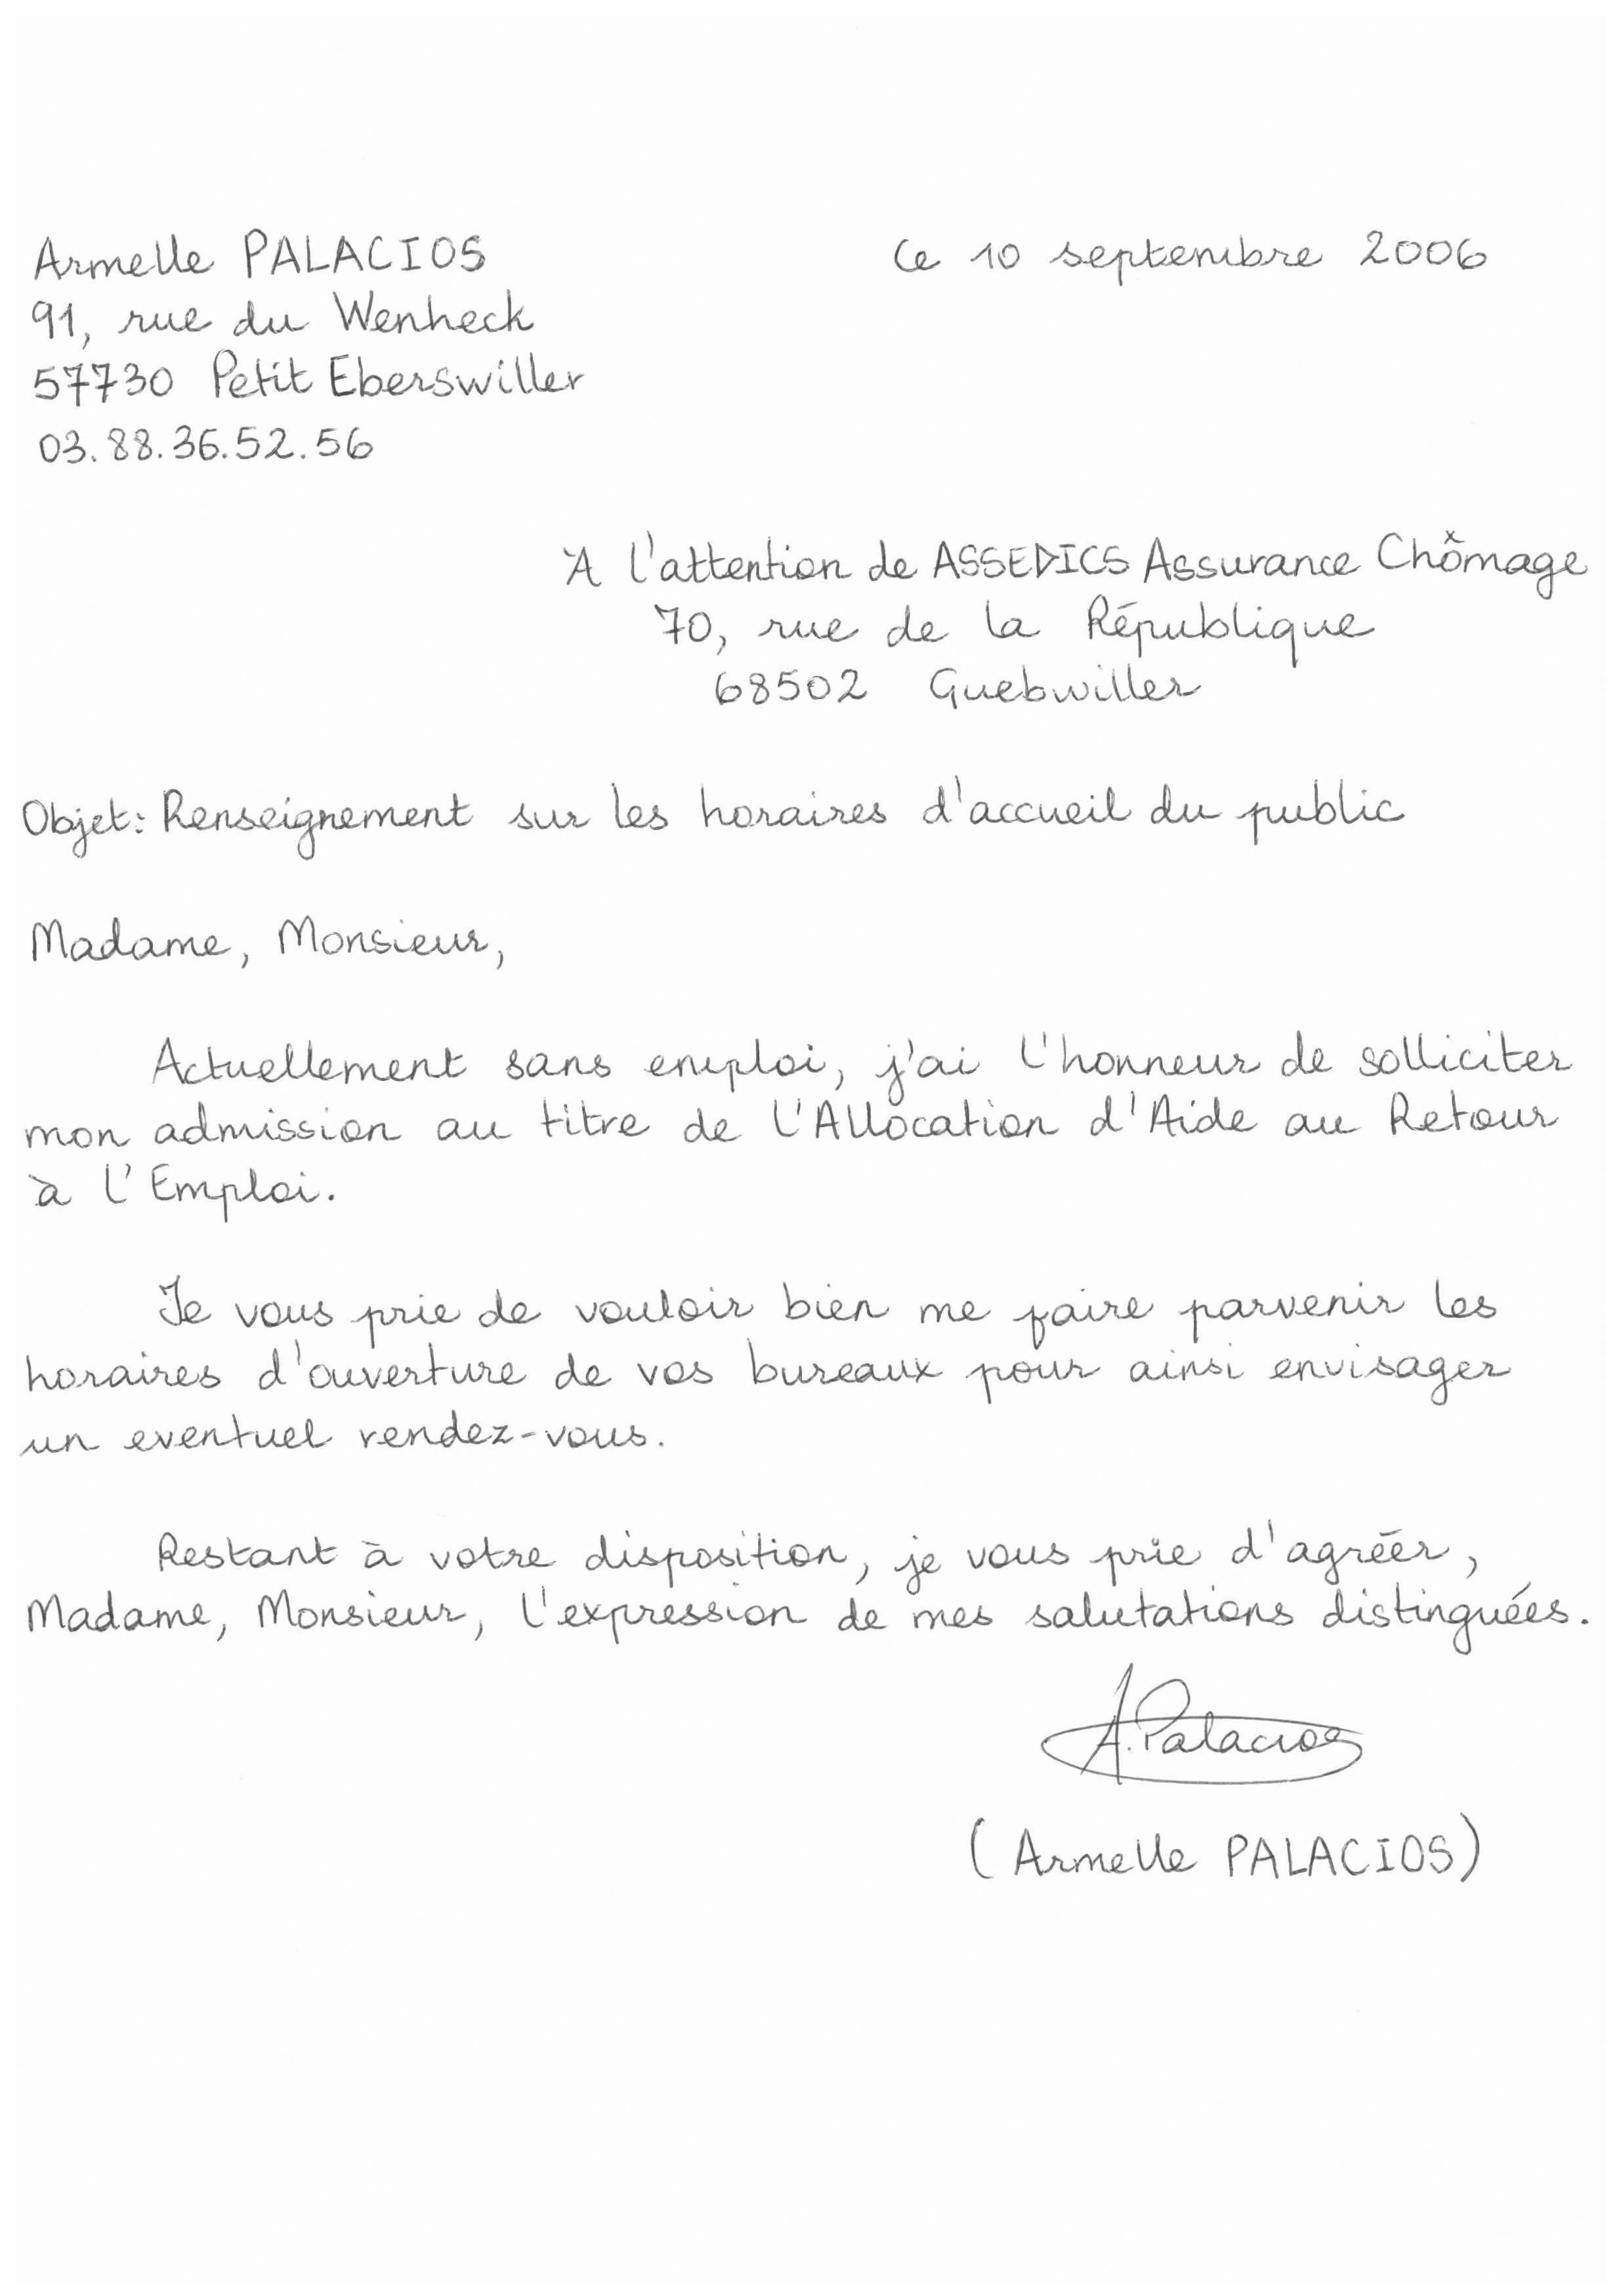 Armelle PALACIOS
Ce 10 septembre 2006
91, rue du Wenheck
57730 Petit Eberswiller
03.88.36.52.56
À l'attention de ASSEDICS Assurance Chômage
70, rue de la République
68502 Guebwiller
Objet: Renseignement sur les horaires d'accueil du public
Madame, Monsieur,
Actuellement sans emploi, j'ai l'honneur de solliciter
mon admission au titre de l'Allocation d'Aide au Retour
à l'Emploi.
Je vous prie de vouloir bien me faire parvenir les
horaires d'ouverture de vos bureaux pour ainsi envisager
un eventuel rendez-vous.
Restant à votre disposition, je vous prie d'agréér,
Madame, Monsieur, l'expression de mes salutations distinguées.
A. Palacios
(Armelle PALACIOS)